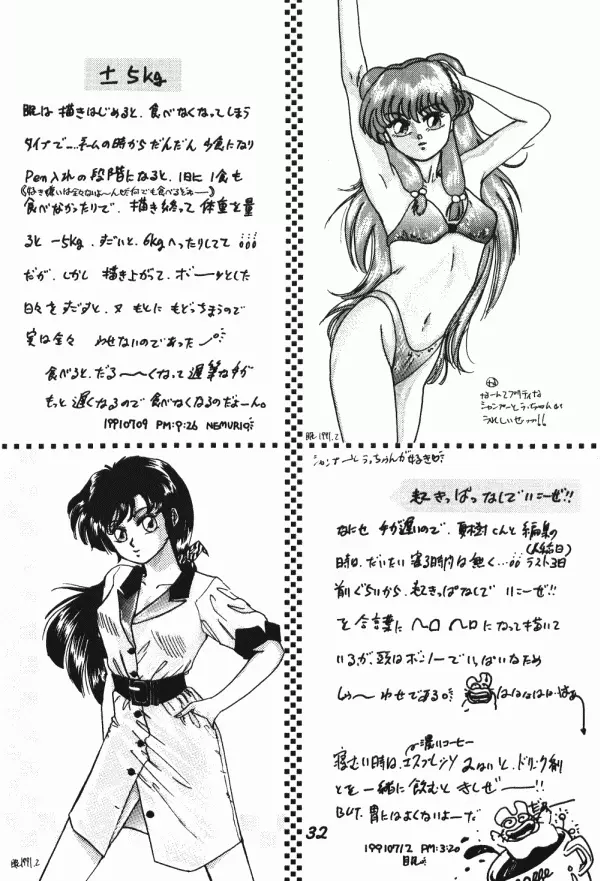 ±5kg
眠は 描きはじめると、食べなくなってしまう
タイプで…ネームの時からだんだん 少食になり
Pen入れの段階になると、1日に 1食も
食べなかったりで、描き終って 体重を量
ると -5kg、すごいと、6kgへったりしてて
だが、しかし 描き上がって、ボーッとした
日々を すごすと、又 もとに もどっちまうので
実は全々 やせないのであった
食べると、だる〜〜くなって 遅筆な手が
もっと 遅くなるので 食べなくなるのだよーん。
19910709 PM:9:26 NEMURI
なーんてプリティな
シャンプーとらんちゃん
うれしいせっ!!
眠1991.2
シャンプーとらんちゃんが好きせ
起きっぱなしでいこーぜ!!
なにせ 手が遅いので、夏樹くんと 編集の
(人結日)
時は、だいたい 寝る時間は無く… ラスト3日
前ぐらいから、起きっぱなしで いこーぜ!!
を 合言葉に ヘロヘロになって描いて
いるが、頭はボンノーでいっぱいなため
しあ〜わせである。
はははははは
濃いコーヒー
寝むい時は、エスプレッソ
とを 一緒に 飲むと きくぜー!!
BUT. 胃にはよくないよーだ
19910712 PM:3:20
眠
眠1991.2
32